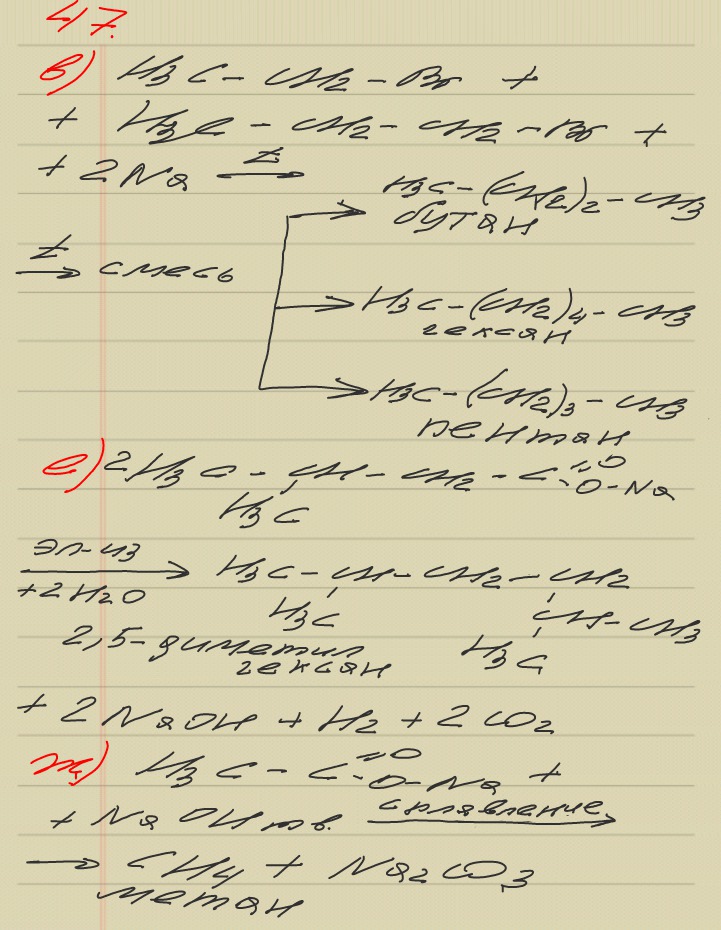 47.
в) H3C - CH2 - Br +
+ H3C - CH2 - CH2 - Br +
+ 2Na t→
H3C - (CH2)2 - CH3
бутан
t→ смесь
H3C - (CH2)4 - CH3
гексан
H3C - (CH2)3 - CH3
пентан
е) 2H3C - CH - CH2 - C=O
O - Na
H3C
эл-из
→ H3C - CH - CH2 - CH2
+2H2O
H3C CH - CH3
2,5-диметил H3C
гексан
+ 2NaOH + H2 + 2CO2
ж) H3C - C=O
O - Na +
+ NaOH тв. сплавление→
→ CH4 + Na2CO3
метан